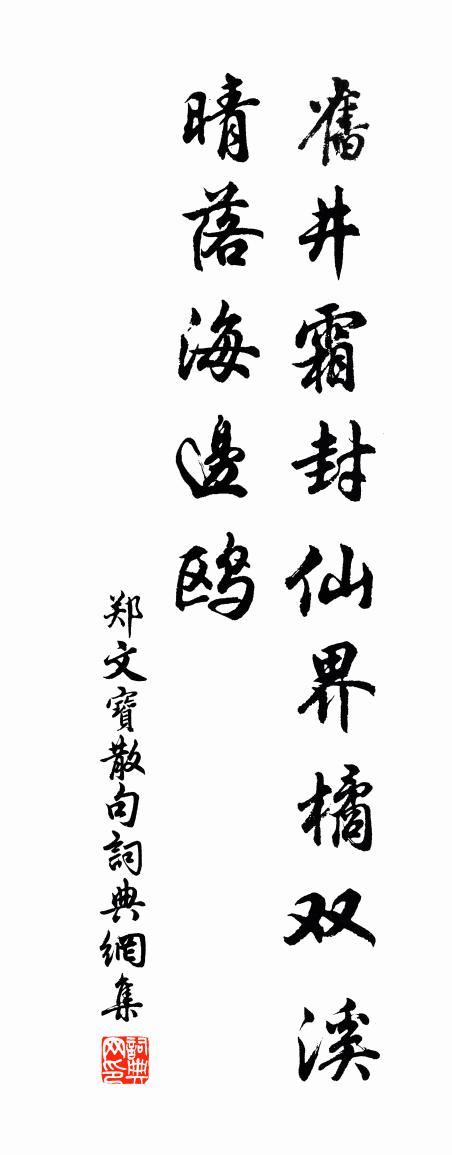 舊井霜封仙界橘双溪
晴落海邊鸥
郑文寶散句詞典網集
詞典网印